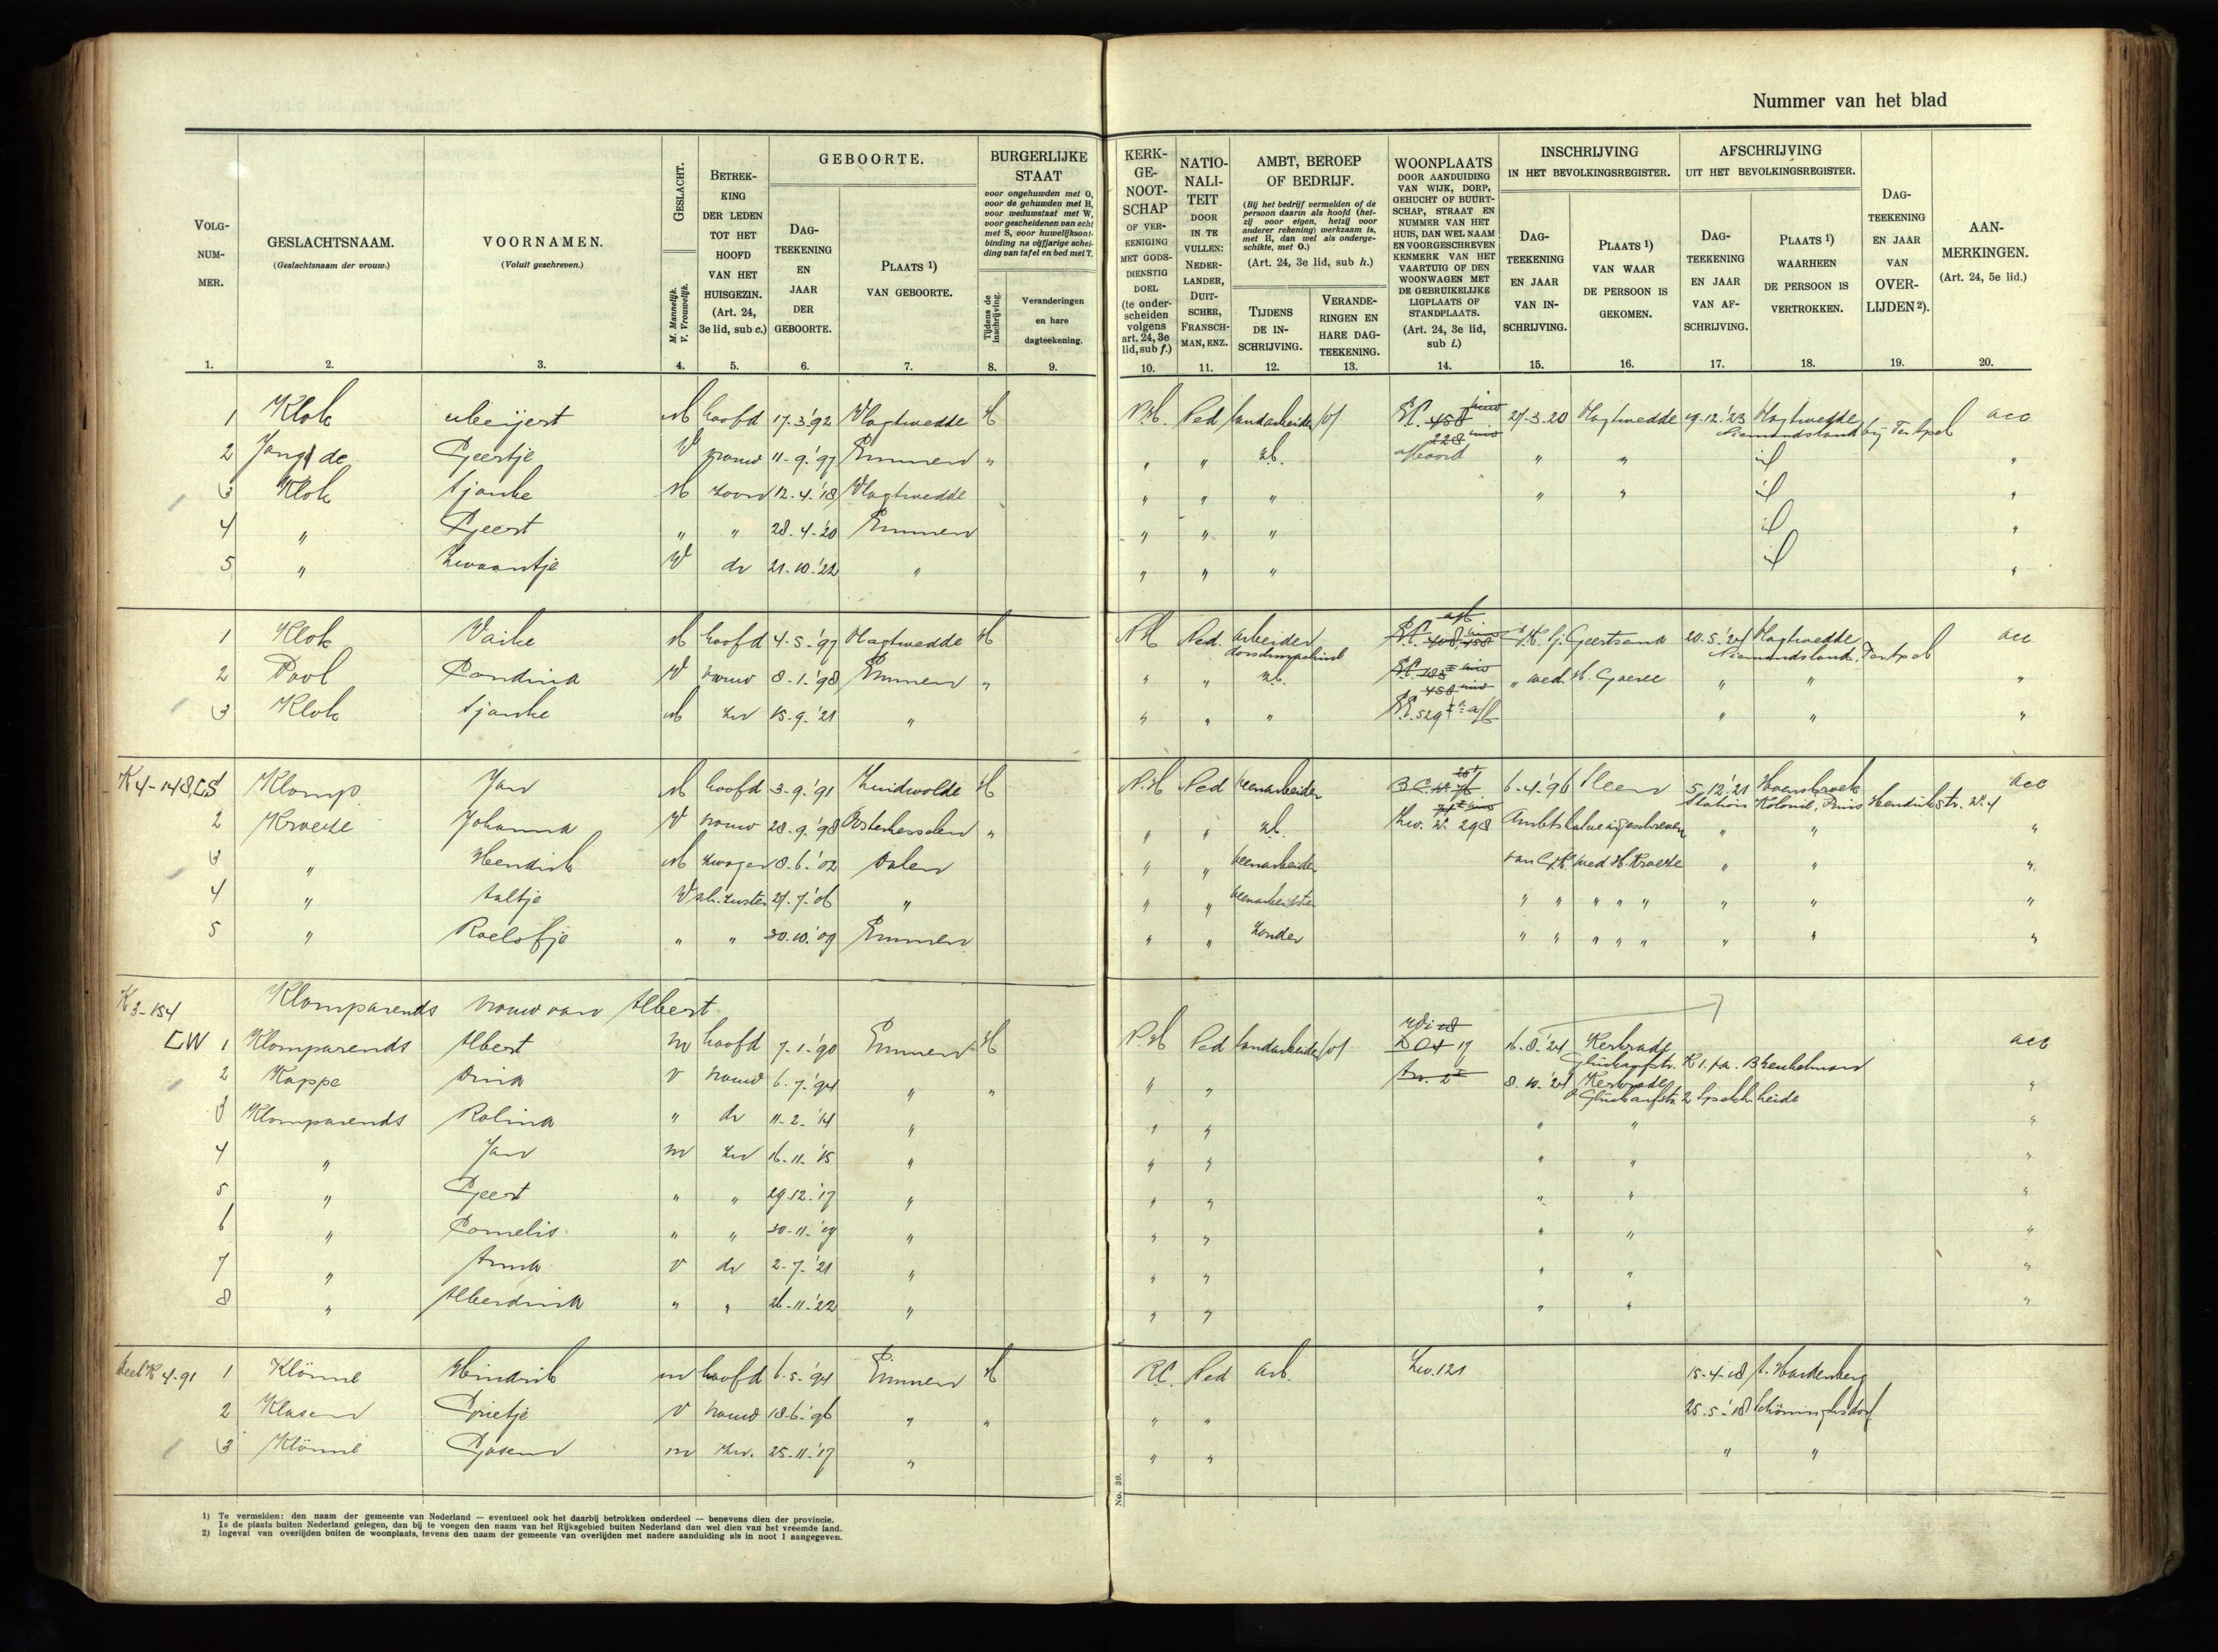 Nummer van het blad
VOLG-
NUM-
MER.
1.
GESLACHTSNAAM.
(Geslachtsnaam der vrouw.)
2.
VOORNAMEN.
(Voluit geschreven.)
3.
GESLACHT.
M. Mannelijk.
V. Vrouwelijk.
4.
BETREK-
KING
DER LEDEN
TOT HET
HOOFD
VAN HET
HUISGEZIN.
(Art. 24,
3e lid, sub c.)
5.
GEBOORTE.
DAG-
TEEKENING
EN
JAAR
DER
GEBOORTE.
6.
PLAATS 1)
VAN GEBOORTE.
7.
BURGERLIJKE
STAAT
voor ongehuwden met O,
voor de gehuwden met H,
voor weduwstaat met W,
voor gescheidenen van echt
met S, voor huwelijksont-
binding na vijfjarige schei-
ding van tafel en bed met T.
Tijdens de
inschrijving.
8.
Veranderingen
en hare
dagteekening.
9.
KERK-
GE-
NOOT-
SCHAP
OF VER-
EENIGING
MET GODS-
DIENSTIG
DOEL
(te onder-
scheiden
volgens
art. 24, 3e
lid, sub f.)
10.
NATIO-
NALI-
TEIT
DOOR
IN TE
VULLEN:
NEDER-
LANDER,
DUIT-
SCHER,
FRANSCH-
MAN, ENZ.
11.
AMBT, BEROEP
OF BEDRIJF.
(Bij het bedrijf vermelden of de
persoon daarin als hoofd (het-
zij voor eigen, hetzij voor
anderer rekening) werkzaam is,
met H, dan wel als onderge-
schikte, met O.)
(Art. 24, 3e lid, sub h.)
TIJDENS
DE IN-
SCHRIJVING.
12.
VERANDE-
RINGEN EN
HARE DAG-
TEEKENING.
13.
WOONPLAATS
DOOR AANDUIDING
VAN WIJK, DORP,
GEHUCHT OF BUURT-
SCHAP, STRAAT EN
NUMMER VAN HET
HUIS, DAN WEL NAAM
EN VOORGESCHREVEN
KENMERK VAN HET
VAARTUIG OF DEN
WOONWAGEN MET
DE GEBRUIKELIJKE
LIGPLAATS OF
STANDPLAATS.
(Art. 24, 3e lid,
sub i.)
14.
INSCHRIJVING
IN HET BEVOLKINGSREGISTER.
DAG-
TEEKENING
EN JAAR
VAN IN-
SCHRIJVING.
15.
PLAATS 1)
VAN WAAR
DE PERSOON IS
GEKOMEN.
16.
AFSCHRIJVING
UIT HET BEVOLKINGSREGISTER.
DAG-
TEEKENING
EN JAAR
VAN AF-
SCHRIJVING.
17.
PLAATS 1)
WAARHEEN
DE PERSOON IS
VERTROKKEN.
18.
DAG-
TEEKENING
EN JAAR
VAN
OVER-
LIJDEN 2).
19.
AAN-
MERKINGEN.
(Art. 24, 5e lid.)
20.
1 Klok Meijert M hoofd 17-3-'92 Vlagtwedde H N.H. Ned landarbeider (o) 458 27-3-20 Vlagtwedde 19.12.'23 Vlagtwedde acc
228 Niemandsland bij Ter Apel
2 Jong de Geertje V vrouw 11-9-'97 Emmen " " " zb. " " id "
3 Klok Tjaske M zoon 12-4-'18 Vlagtwedde " " " " " id "
4 " Geert " " 28-4-'20 Emmen " " " id "
5 " Zwaantje V dr 21-10-'22 " " " " id "
1 Klok Vaike M hoofd 4-5-'97 Vlagtwedde H NH Ned. arbeider 408 458 Geertsema 20-5-'24 Vlagtwedde acc
dorschmachine Niemandsland, Ter Apel
2 Pool Jandina V vrouw 8-1-'98 Emmen " " " zb. 183 " wed. H. Goeree " " "
458
3 Klok Tjaske M zn 15-9-'21 " " " " 529 " " "
K4-148 LS Klomp Jan M hoofd 3-9-'91 Zuidwolde H N.H Ned veenarbeider 6-4-'96 Sleen 5.12.'21 Hoensbroek acc
Station Kolonie, Prins Hendrikstr. No. 4
2 Kroeze Johanna V vrouw 28-9-'98 Oosterhesselen " " " zb. Zw. No. 298 Ambtshalve ingeschreven " " "
3 " Hendrik M zwager 8-6-'02 Dalen " " veenarbeider van wed. H. Kroeze " " "
4 " Aaltje V sch. zuster 27-7-'06 " " " veenarbeidster " " " " " " " "
5 " Roelofje " " 30-10-'09 Emmen " " zonder " " " " " " " "
K3-154
Klomparends vrouw van Albert
LW 1 Klomparends Albert m hoofd 7-1-'90 Emmen H N.H Ned landarbeider (o) 17 16-8-'24 Kerkrade acc
Glückaufstr. K 1. fa. Breukelman
2 Kappe Dina v vrouw 6-7-'94 " " " " 8-10-'24 Kerkrade "
Glückaufstr. 2 Spekh. heide
3 Klomparends Rolina " dr 11-2-'14 " " " " " "
4 " Jan m zn 16-11-'15 " " " " " "
5 " Geert " " 29-12-'17 " " " " " "
6 " Cornelis " " 30-11-'19 " " " " " "
7 " Anna v dr 2-7-'21 " " " " " "
8 " Alberdina " " 26-11-'22 " " " " " "
K4-91 1 Klönne Hindrik m hoofd 6-5-'94 Emmen H R.C. Ned arb. Zw. 121 15-4-18 A. Hardenberg
2 Klasen Grietje v vrouw 18-6-'96 " " " " 25-5-'18 Schöninghsdorf
3 Klönne Gosen m zn. 25-11-'17 " " " " "
No. 39.
1) Te vermelden: den naam der gemeente van Nederland — eventueel ook het daarbij betrokken onderdeel — benevens dien der provincie.
Is de plaats buiten Nederland gelegen, dan bij te voegen den naam van het Rijksgebied buiten Nederland dan wel dien van het vreemde land.
2) Ingeval van overlijden buiten de woonplaats, tevens den naam der gemeente van overlijden met nadere aanduiding als in noot 1 aangegeven.